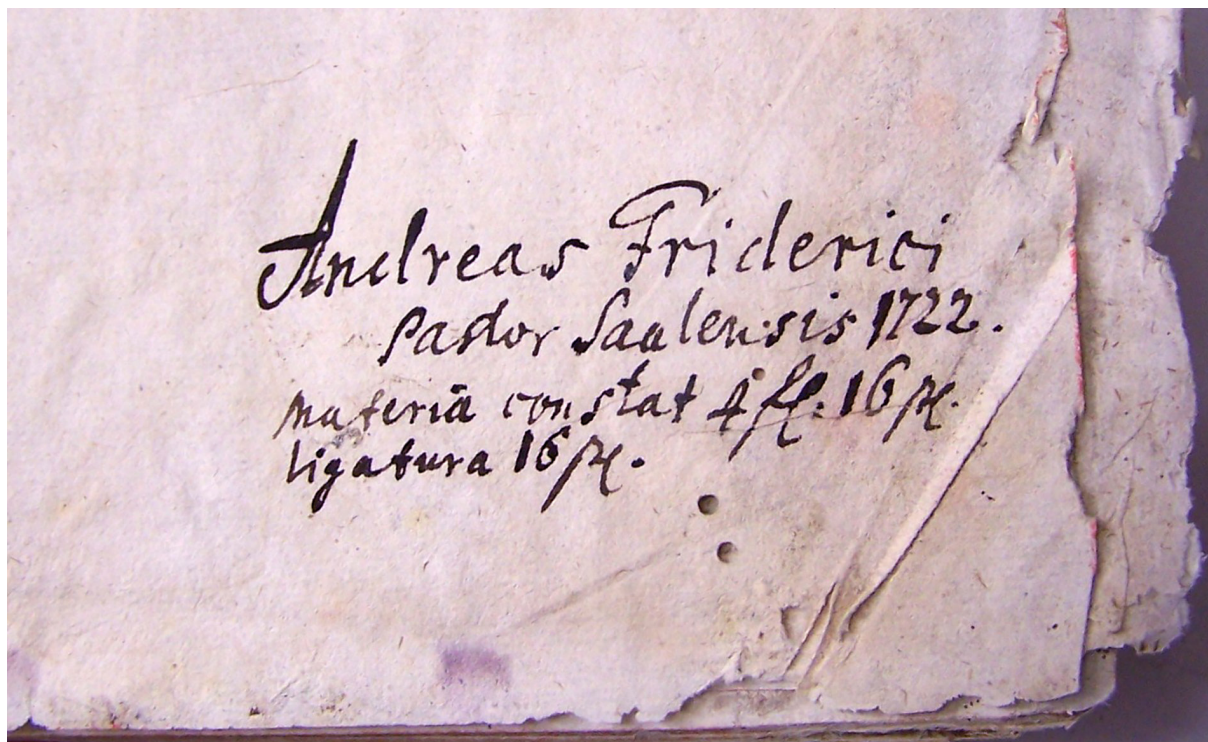 Andreas Friderici
Pastor Saalensis 1722.
materia constat 4 fl: 16 ßl.
ligatura 16 ßl.